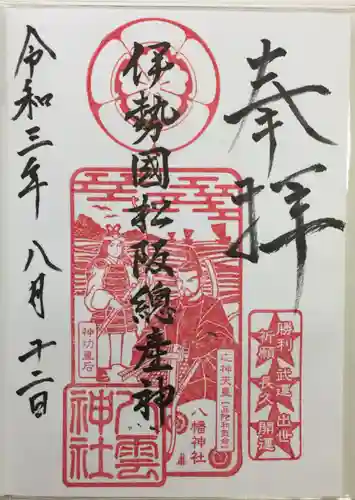 奉拝
伊勢國松阪總産神
令和三年八月十二日
神功皇后
応神天皇
八幡神社
八雲神社
勝利 武運 出世
祈願 長久 開運